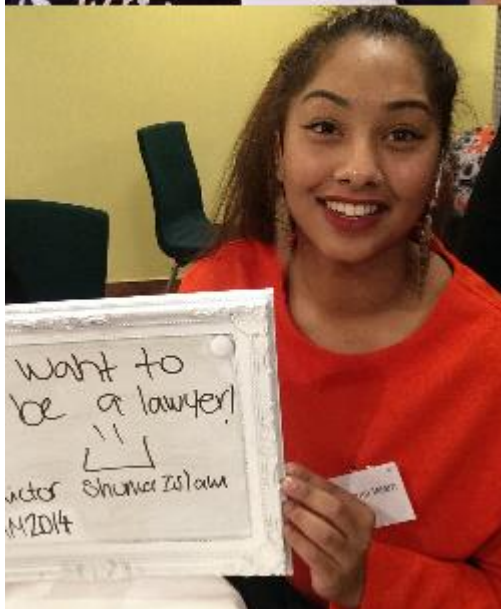 want to
be a lawyer!
uctor Shuma Islam
M2014